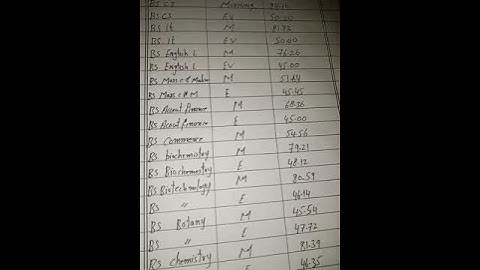 BS CS Morning
BS CS Ev 50.20
BS It M 81.72
BS It Ev 50.00
BS English L M 76.26
BS English L Ev 45.00
BS Mass c M 51.64
BS Mass c M E 45.45
BS Accout finance M 68.36
BS Acout finance E 45.00
BS Commerce M 54.56
BS biochemistry M 79.21
BS Biochemestry E 48.12
BS Biotechnology M 80.59
BS " E 46.14
BS Botany M 45.54
BS " E 47.72
BS Chemistry M 81.39
E 46.35